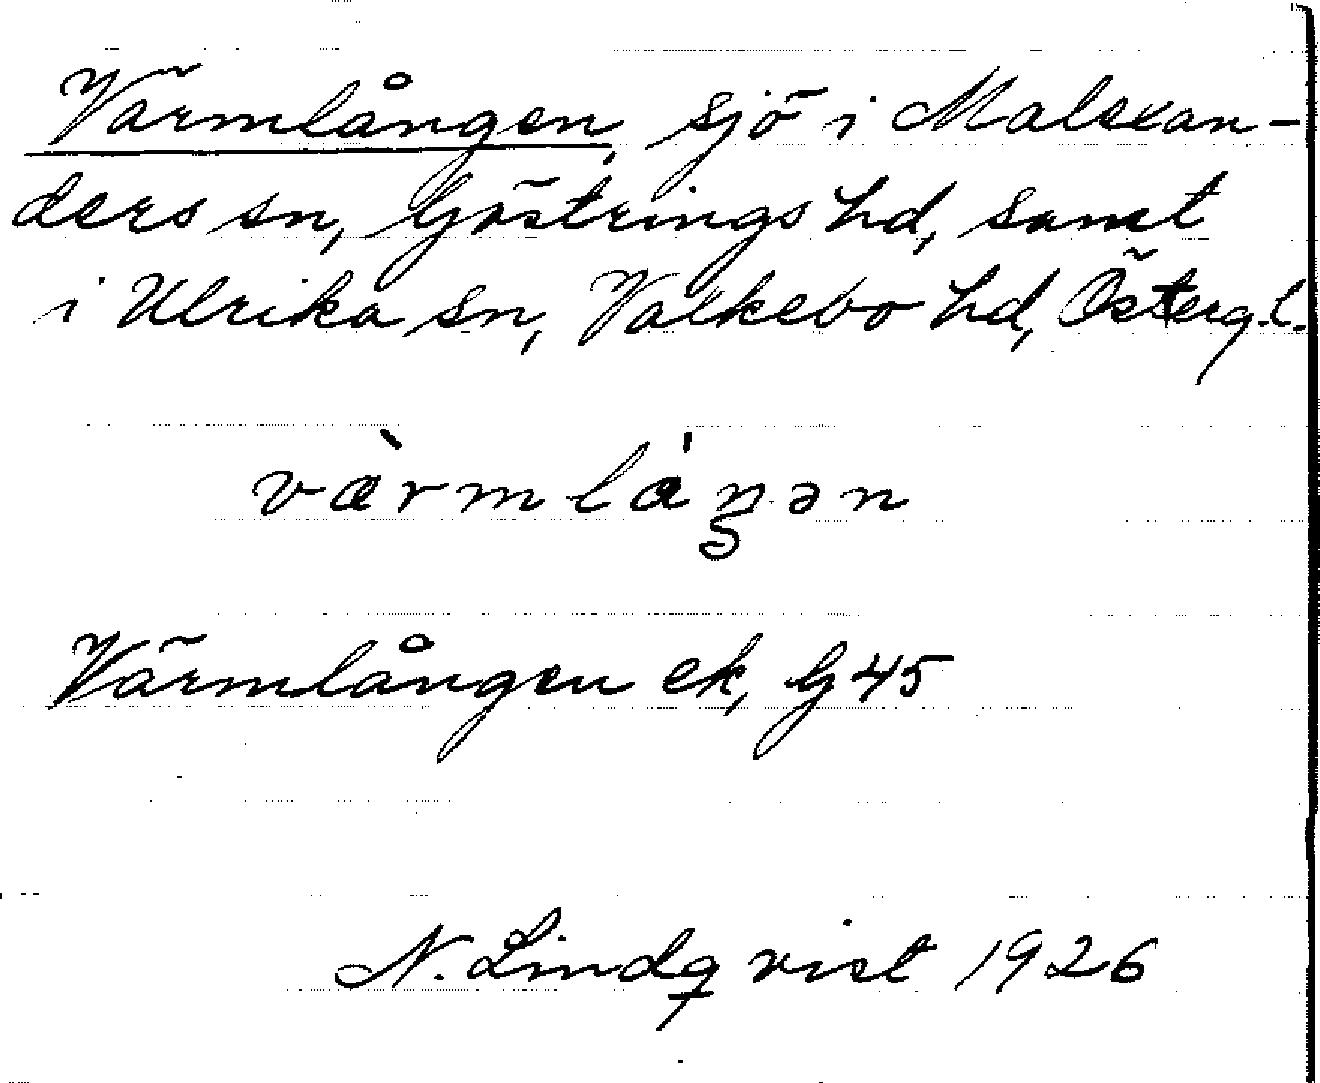 Värmlången, sjö i Malexan-
ders sn, Göstrings hd, samt
i Ulrika sn, Valkebo hd, Österg.l.
vàrmláŋən
Värmlången ek, G 45
N. Lindqvist 1926